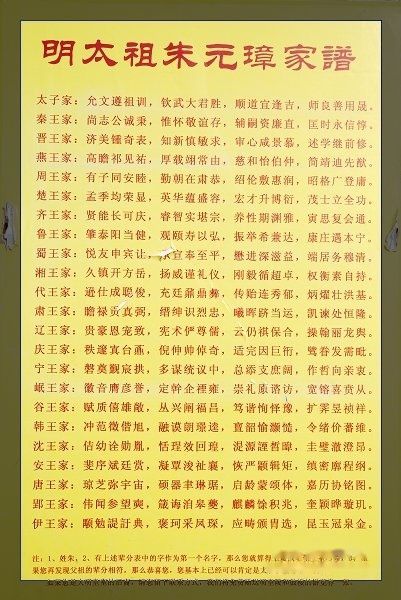 明太祖朱元璋家谱
太子家：允文遵祖训，钦武大君胜，顺道宜逢吉，师良善用晟。
秦王家：尚志公诚秉，惟怀敬谊存，辅嗣资廉直，匡时永信惇。
晋王家：济美锺奇表，知新慎敏求，审心咸景慕，述学继前修。
燕王家：高瞻祁见祐，厚载翊常由，慈和怡伯仲，简靖迪先猷。
周王家：有子同安睦，勤朝在肃恭，绍伦敷惠润，昭格广登庸。
楚王家：孟季均荣显，英华蕴盛容，宏才升博衍，茂士立全功。
齐王家：贤能长可庆，睿智实堪宗，养性期渊雅，寅思复会通。
鲁王家：肇泰阳当健，观颐寿以弘，振举希兼达，康庄遇本宁。
蜀王家：悦友申宾让，宣奉至平，懋进深滋益，端居务穆清。
湘王家：久镇开方岳，扬威谨礼仪，刚毅循超卓，权衡素自持。
代王家：逊仕成聪俊，充廷鼐鼎彝，传贻连秀郁，炳燿壮洪基。
肃王家：瞻禄贡真弼，缙绅识烈忠，曦晖跻当运，凯谏处恒隆。
辽王家：贵豪恩宠致，宪术俨尊儒，云仍祺保合，操翰丽龙舆。
庆王家：秩邃寘台鼒，倪伸帅倬奇，适完因巨衍，鹭眷发需毗。
宁王家：磐奠觐宸拱，多谋统议中，总添支庶阔，作哲向亲衷。
岷王家：徽音膺彦誉，定幹企禋雍，崇礼原谘访，宽镕喜贲从。
谷王家：赋质僖雄敞，丛兴阐福昌，笃谐恂怿豫，扩霁昱祯祥。
韩王家：冲范徵偕旭，融谟朗璟逵，亶韶愉灏慥，令绪价蕃维。
沈王家：佶幼诠勋胤，恬珵效回瑝，湜源諲晢暐，圭璧澈澄昂。
安王家：斐序斌廷赏，凝覃浚祉襄，恢严颛辑矩，缜密廓程纲。
唐王家：琼芝弥宇宙，硕器聿琳琚，启龄蒙颂体，嘉历协铭图。
郢王家：伟闻参望奭，箴诲洎皋夔，麒麟馀积兆，奎颖晔璇玑。
伊王家：颙勉諟訏典，褒珂采凤琛，应畴颁胄选，昆玉冠泉金。
注：1、姓朱；2、有上述辈分表中的字作为第一个名字，那么您就算得
果您再发现父祖的辈分相符，那么恭喜您，您基本上已经可以肯定是太